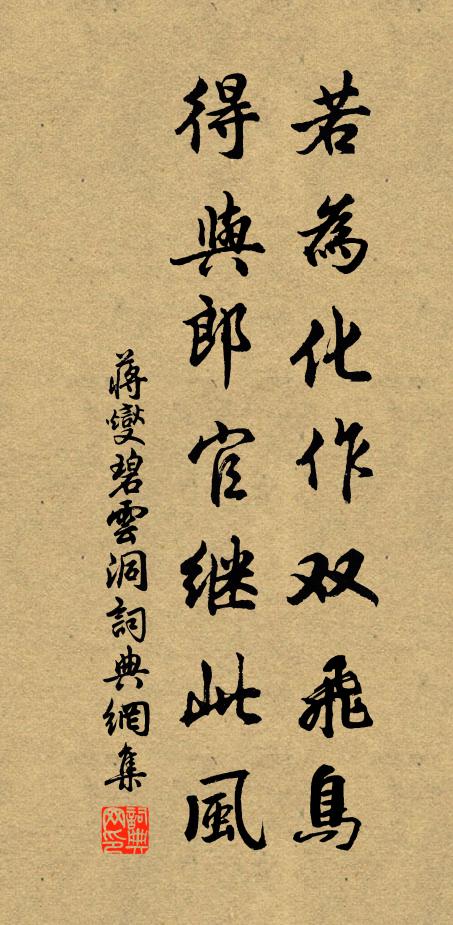 若為化作双飛鳥
得與郎官继此風
蔣燮碧雲洞詞典網集
詞典網印